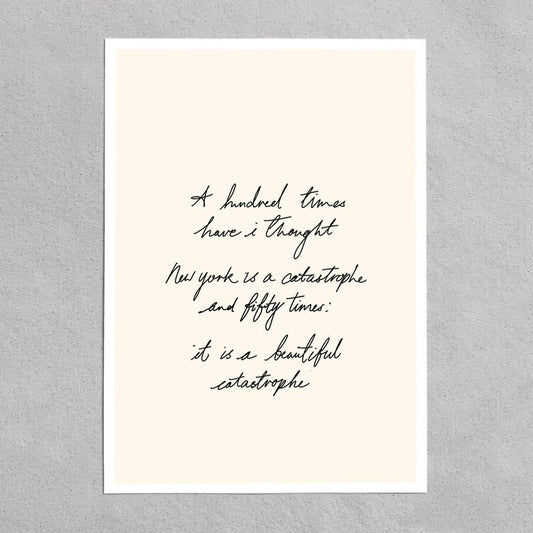 A hundred times
have i thought
New york is a catastrophe
and fifty times:
it is a beautiful
catastrophe